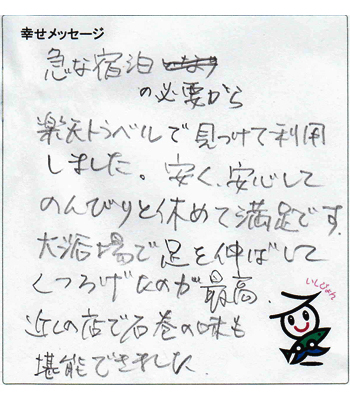 幸せメッセージ
急な宿泊
の必要から
楽天トラベルで見つけて利用
しました。安く、安心して
のんびりと休めて満足です。
大浴場で足を伸ばして
くつろげたのが最高。
近くの店で石巻の味も
堪能できました
いしぴょん